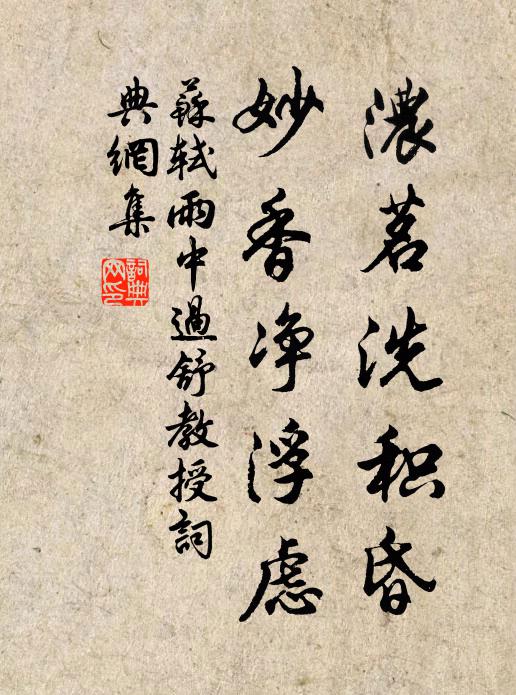 濃茗洗积昏
妙香净浮慮
蘇軾雨中過舒教授詞
典網集
詞典网印